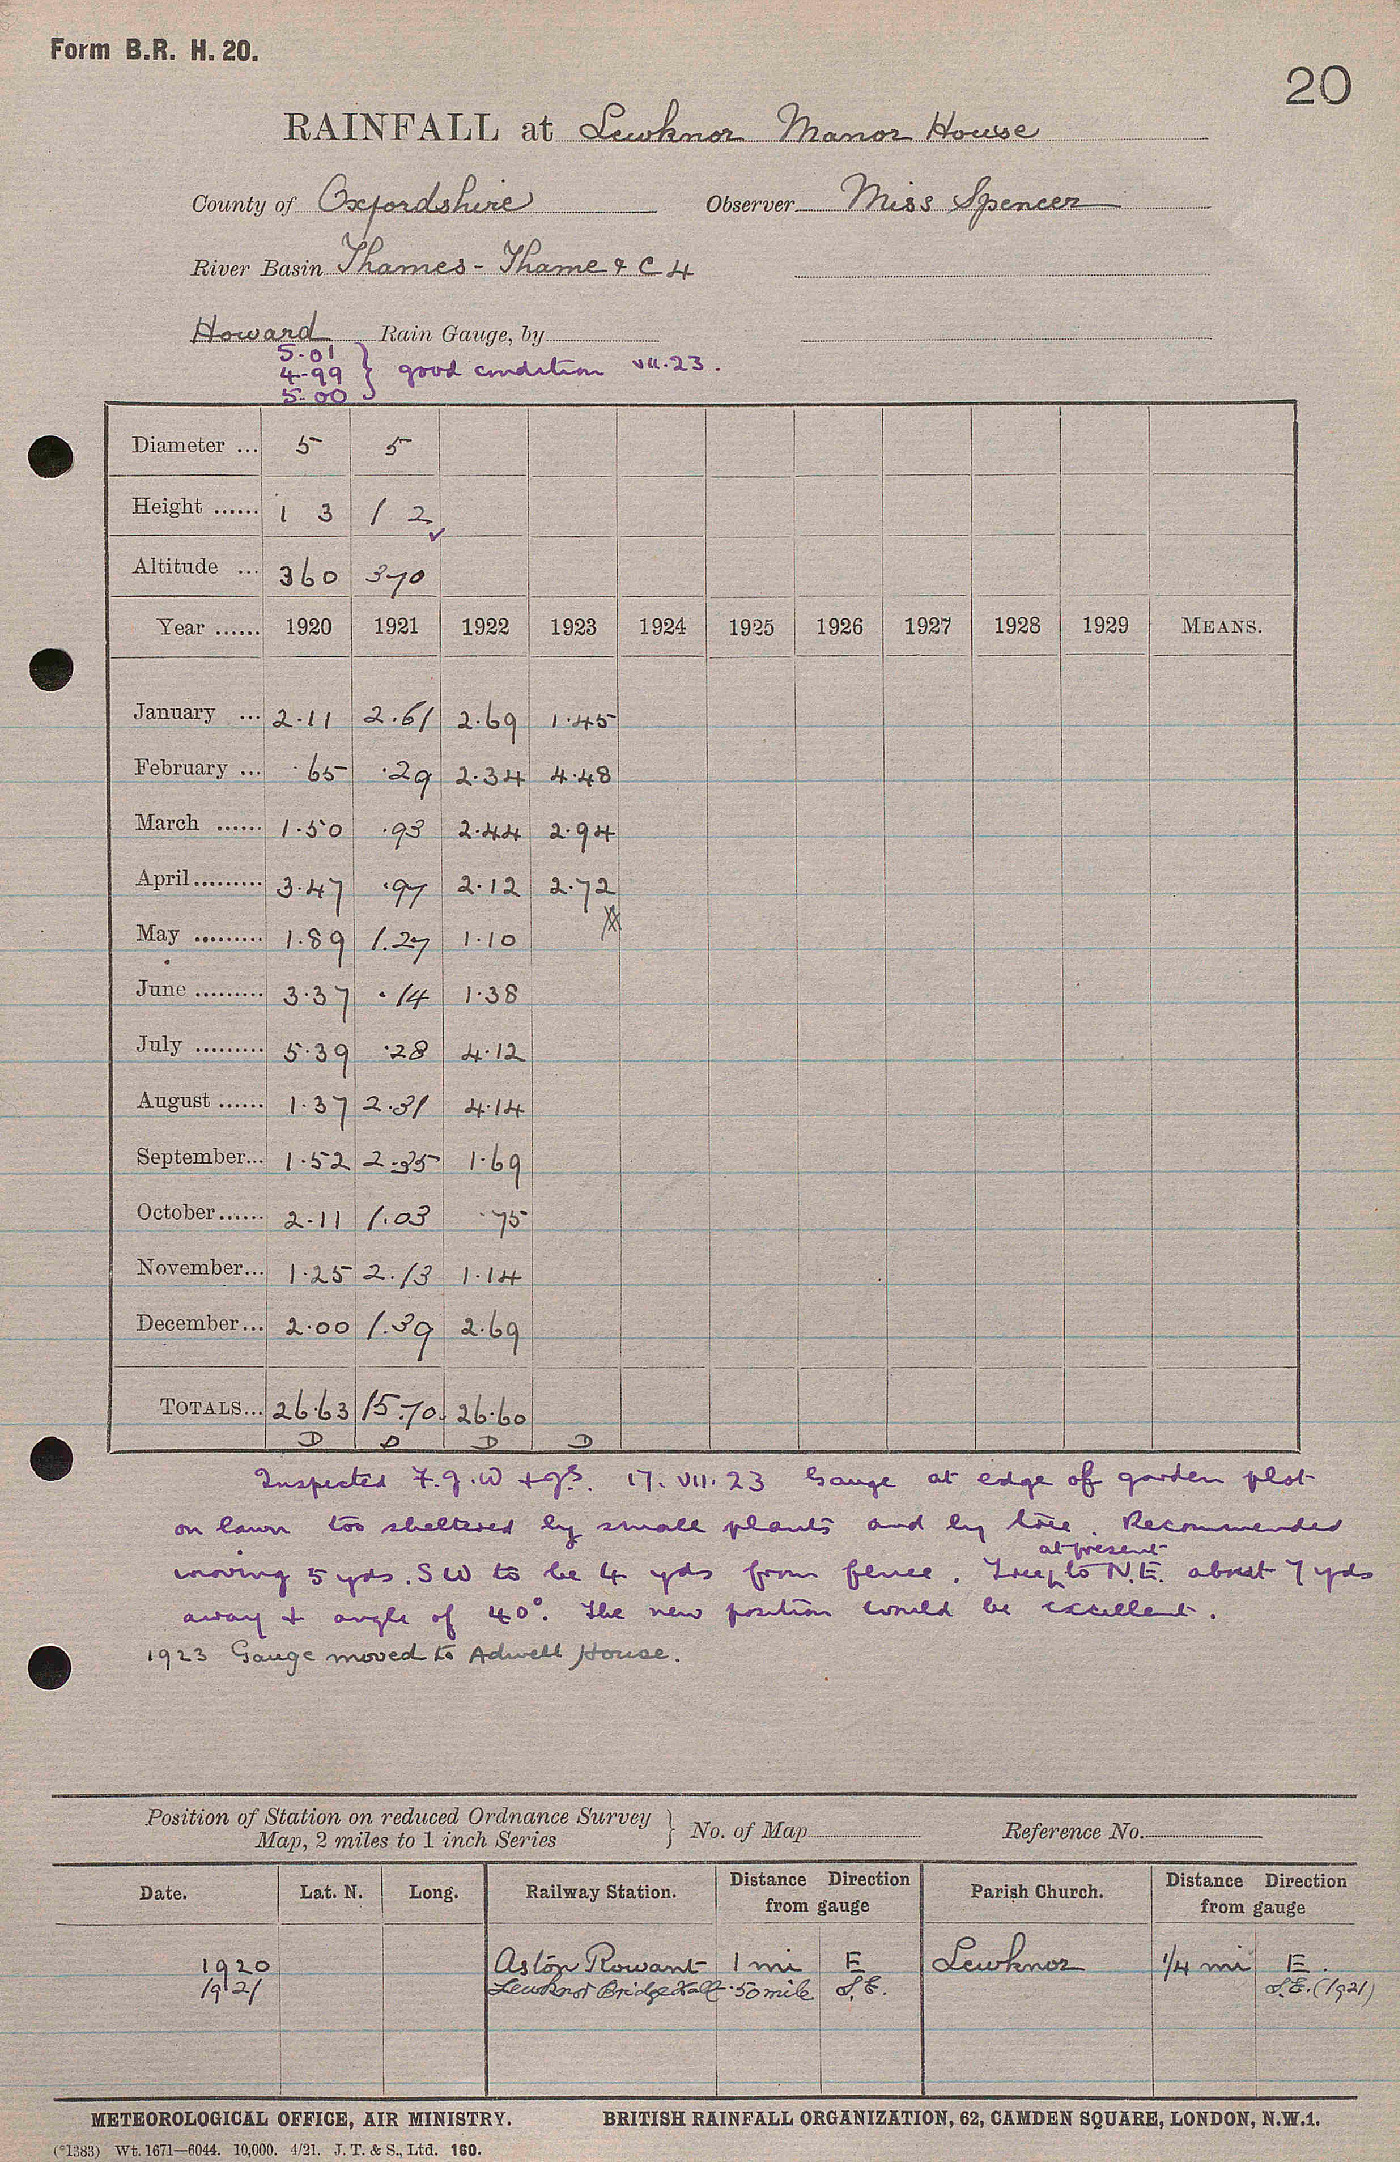 Form B.R. H. 20.
20
RAINFALL at Lewknor Manor House
County of Oxfordshire Observer Miss Spencer
River Basin Thames - Thame & C 4
Howard Rain Gauge, by
5.01
4.99 } good condition VII.23.
5.00
Diameter ... 5 5
Height ...... 1 3 1 2
Altitude ... 360 370
Year ...... 1920 1921 1922 1923 1924 1925 1926 1927 1928 1929 MEANS.
January ... 2.11 2.61 2.69 1.45
February ... .65 .29 2.34 4.48
March ...... 1.50 .93 2.44 2.94
April ......... 3.47 .97 2.12 2.72
May ......... 1.89 1.27 1.10
June ......... 3.37 .14 1.38
July ......... 5.39 .28 4.12
August ...... 1.37 2.31 4.14
September... 1.52 2.35 1.69
October...... 2.11 1.03 .75
November... 1.25 2.13 1.14
December... 2.00 1.39 2.69
TOTALS... 26.63 15.70 26.60
D D D D
Inspected 17.VII.23 Gauge at edge of garden plot
on lawn too sheltered by small plants and by tree. Recommended
moving 5 yds. SW to be 4 yds from fence. Tree at present to N.E. about 7 yds
away & angle of 40°. The new position would be excellent.
1923 Gauge moved to Adwell House.
Position of Station on reduced Ordnance Survey
Map, 2 miles to 1 inch Series } No. of Map Reference No.
Date. Lat. N. Long. Railway Station. Distance Direction from gauge Parish Church. Distance Direction from gauge
1920 Aston Rowant 1 mi E Lewknor 1/4 mi E.
1921 Lewknor Bridge Halt .50 mile S.E. S.E. (1921)
METEOROLOGICAL OFFICE, AIR MINISTRY. BRITISH RAINFALL ORGANIZATION, 62, CAMDEN SQUARE, LONDON, N.W.1.
(*1383) Wt. 1671—6044. 10,000. 4/21. J. T. & S., Ltd. 160.